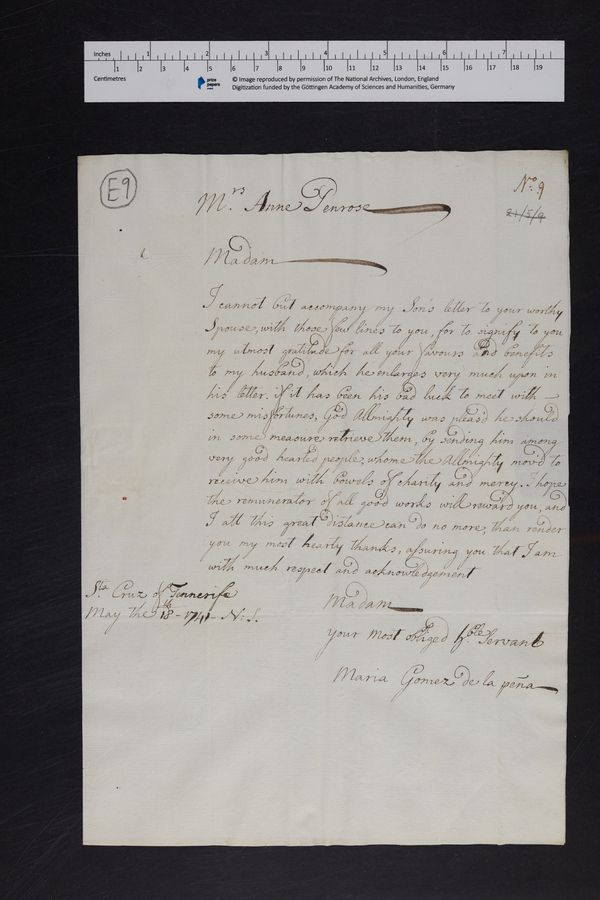 Inches 1 2 3 4 5 6 7
1 2 3 4 5 6 7 8 9 10 11 12 13 14 15 16 17 18 19
Centimetres
prize papers
© Image reproduced by permission of The National Archives, London, England
Digitization funded by the Göttingen Academy of Sciences and Humanities, Germany
E9
No. 9
21/5/9
Mrs. Anne Penrose
Madam
I cannot but accompany my Son's letter to your worthy
Spouse, with those few lines to you, for to signify to you
my utmost gratitude for all your favours and benefits
to my husband, which he enlarges very much upon in
his letter. if it has been his bad luck to meet with
some misfortunes, God Allmighty was pleas'd he should
in some measure retrieve them, by sending him among
very good hearted people, whome the Allmighty mov'd to
receive him with bowels of charity and mercy. I hope
the remunerator of all good works will reward you, and
I att this great distance can do no more, than render
you my most hearty thanks, assuring you that I am
with much respect and acknowledgement
Sta. Cruz of Tennerife
May the 18th - 1741 - N: S.
Madam
your most obliged hble. Servant
Maria Gomez de la peña